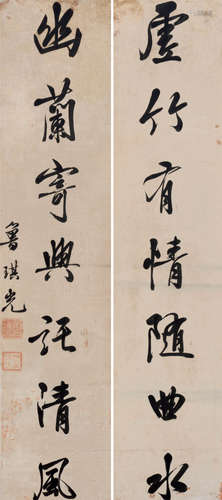 虛竹有情随曲水
幽蘭寄興託清風
魯琪光